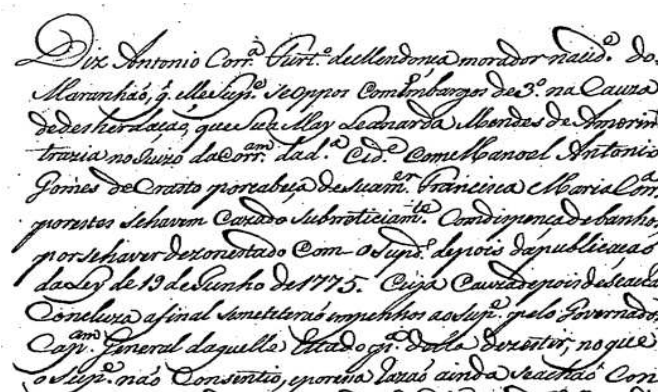 Diz Antonio Corr.ª Furt.º de Mendonca morador na Cid.e do
Maranhaó, q̃ elle Sup.e Se oppos Com Embargos de 3.º na Cauza
de desherdaçaó, que Sua May Leonarda Mendes de Amorim
trazia no Juizo da Corr.am da d.ª Cid.e Com Manoel Antonio
Gomes de Crasto por cabeça de Sua m.er Francisca Maria Corr.ª
por estes Se haverem Cazado Subrreticiam.te Com dispença de banhos,
por Se haver dezonestado Com o Sup.do depois da publicaçaó
da Ley de 19 de Junho de 1775. Cuja Cauza depois de Seacha
Concluza a final Se meteraó empenhos ao Sup.e pelo Governador,
Cap.am General daquelle Estado p.ª della dezestir, no que
o Sup.e naó Consentio, e por essa razaó ainda Se acha Com